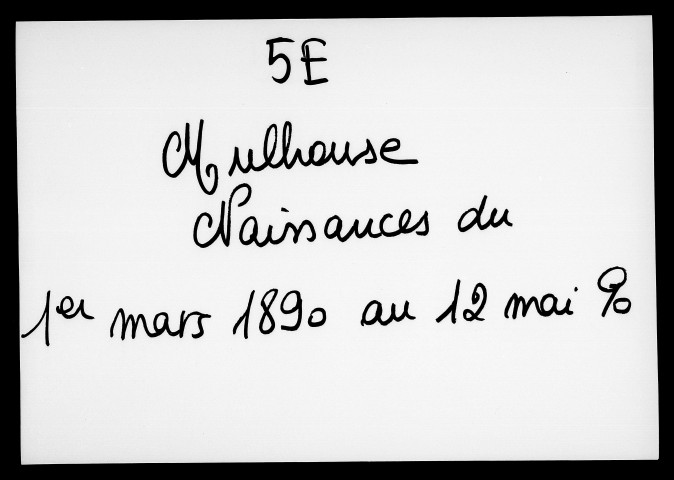 5E
Mulhouse
Naissances du
1er mars 1890 au 12 mai 90